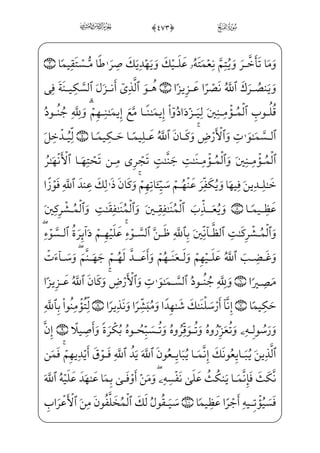 الجزء السادس والعشرون ﴿٤٧٣﴾ سورة الفتح
وَمَا تَأَخَّرَ وَيُتِمَّ نِعْمَتَهُۥ عَلَيْكَ وَيَهْدِيَكَ صِرَٰطًا مُّسْتَقِيمًا ۝
وَيَنصُرَكَ ٱللَّهُ نَصْرًا عَزِيزًا ۝ هُوَ ٱلَّذِىٓ أَنزَلَ ٱلسَّكِينَةَ فِى
قُلُوبِ ٱلْمُؤْمِنِينَ لِيَزْدَادُوٓا۟ إِيمَٰنًا مَّعَ إِيمَٰنِهِمْ ۗ وَلِلَّهِ جُنُودُ
ٱلسَّمَٰوَٰتِ وَٱلْأَرْضِ ۚ وَكَانَ ٱللَّهُ عَلِيمًا حَكِيمًا ۝ لِّيُدْخِلَ
ٱلْمُؤْمِنِينَ وَٱلْمُؤْمِنَٰتِ جَنَّٰتٍ تَجْرِى مِن تَحْتِهَا ٱلْأَنْهَٰرُ
خَٰلِدِينَ فِيهَا وَيُكَفِّرَ عَنْهُمْ سَيِّـَٔاتِهِمْ ۚ وَكَانَ ذَٰلِكَ عِندَ ٱللَّهِ فَوْزًا
عَظِيمًا ۝ وَيُعَذِّبَ ٱلْمُنَٰفِقِينَ وَٱلْمُنَٰفِقَٰتِ وَٱلْمُشْرِكِينَ
وَٱلْمُشْرِكَٰتِ ٱلظَّآنِّينَ بِٱللَّهِ ظَنَّ ٱلسَّوْءِ ۚ عَلَيْهِمْ دَآئِرَةُ ٱلسَّوْءِ ۖ
وَغَضِبَ ٱللَّهُ عَلَيْهِمْ وَلَعَنَهُمْ وَأَعَدَّ لَهُمْ جَهَنَّمَ ۖ وَسَآءَتْ
مَصِيرًا ۝ وَلِلَّهِ جُنُودُ ٱلسَّمَٰوَٰتِ وَٱلْأَرْضِ ۚ وَكَانَ ٱللَّهُ عَزِيزًا
حَكِيمًا ۝ إِنَّآ أَرْسَلْنَٰكَ شَٰهِدًا وَمُبَشِّرًا وَنَذِيرًا ۝ لِّتُؤْمِنُوا۟ بِٱللَّهِ
وَرَسُولِهِۦ وَتُعَزِّرُوهُ وَتُوَقِّرُوهُ وَتُسَبِّحُوهُ بُكْرَةً وَأَصِيلًا ۝ إِنَّ
ٱلَّذِينَ يُبَايِعُونَكَ إِنَّمَا يُبَايِعُونَ ٱللَّهَ يَدُ ٱللَّهِ فَوْقَ أَيْدِيهِمْ ۚ فَمَن
نَّكَثَ فَإِنَّمَا يَنكُثُ عَلَىٰ نَفْسِهِۦ ۖ وَمَنْ أَوْفَىٰ بِمَا عَٰهَدَ عَلَيْهُ ٱللَّهَ
فَسَيُؤْتِيهِ أَجْرًا عَظِيمًا ۝ سَيَقُولُ لَكَ ٱلْمُخَلَّفُونَ مِنَ ٱلْأَعْرَابِ